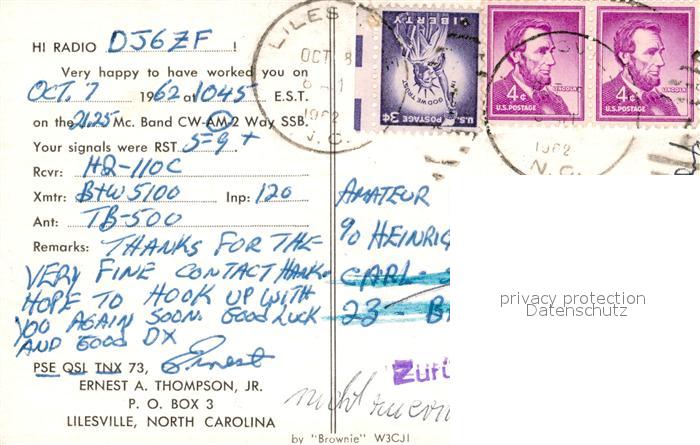 HI RADIO DJ6ZF !
Very happy to have worked you on
OCT. 7 1962 at 1045 E.S.T.
on the 21.25 Mc. Band CW-AM-2 Way SSB.
Your signals were RST 5-9 +
Rcvr: HQ-110C
Xmtr: B+W 5100 Inp: 120
Ant: TB-500
Remarks: THANKS FOR THE
VERY FINE CONTACT HANK.
HOPE TO HOOK UP WITH
YOU AGAIN SOON. GOOD LUCK
AND GOOD DX
PSE QSL TNX 73, Ernest
ERNEST A. THOMPSON, JR.
P. O. BOX 3
LILESVILLE, NORTH CAROLINA
by "Brownie" W3CJI
LILES
OCT 8
1962
N.C.
LIBERTY
IN GOD WE TRUST
U.S. POSTAGE 3¢
LINCOLN
4¢
U.S. POSTAGE
LINCOLN
4¢
U.S. POSTAGE
1962
N.C.
AMATEUR
% HEINRIC
CARL-
23- B
Zurü
nicht
privacy protection
Datenschutz